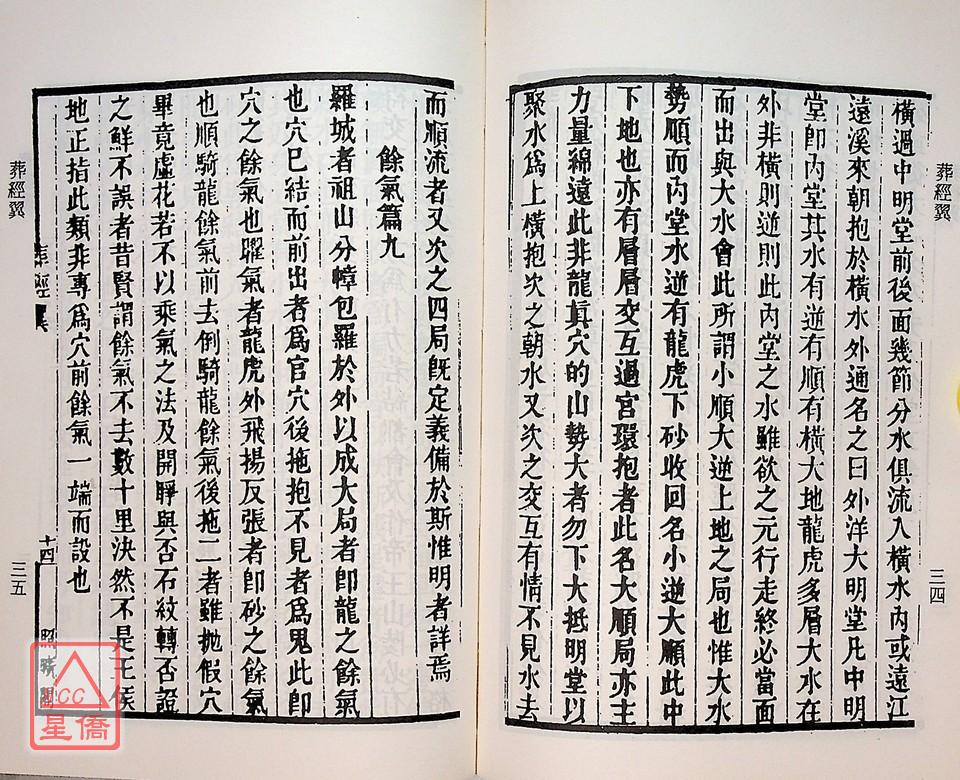 葬經翼
三四
橫過中明堂前後面幾節分水俱流入橫水內或遠江
遠溪來朝抱於橫水外通名之曰外洋大明堂凡中明
堂卽內堂其水有逆有順有橫大地龍虎多層大水在
外非橫則逆則此內堂之水雖欲之元行走終必當面
而出與大水會此所謂小順大逆上地之局也惟大水
勢順而內堂水逆有龍虎下砂收回名小逆大順此中
下地也亦有層層交互過宮環抱者此名大順局亦主
力量綿遠此非龍真穴的山勢大者勿下大抵明堂以
聚水爲上橫抱次之朝水又次之交互有情不見水去
而順流者又次之四局旣定義備於斯惟明者詳焉
餘氣篇九
羅城者祖山分幛包羅於外以成大局者卽龍之餘氣
也穴巳結而前出者爲官穴後拖抱不見者爲鬼此卽
穴之餘氣也曜氣者龍虎外飛揚反張者卽砂之餘氣
也順騎龍餘氣前去倒騎龍餘氣後拖二者雖拋假穴
畢竟虛花若不以乘氣之法及開睜與否石紋轉否證
之鮮不誤者昔賢謂餘氣不去數十里決然不是王侯
地正指此類非專爲穴前餘氣一端而設也
葬經翼
十四
照曠閣
葬經翼
三五
CC
星僑